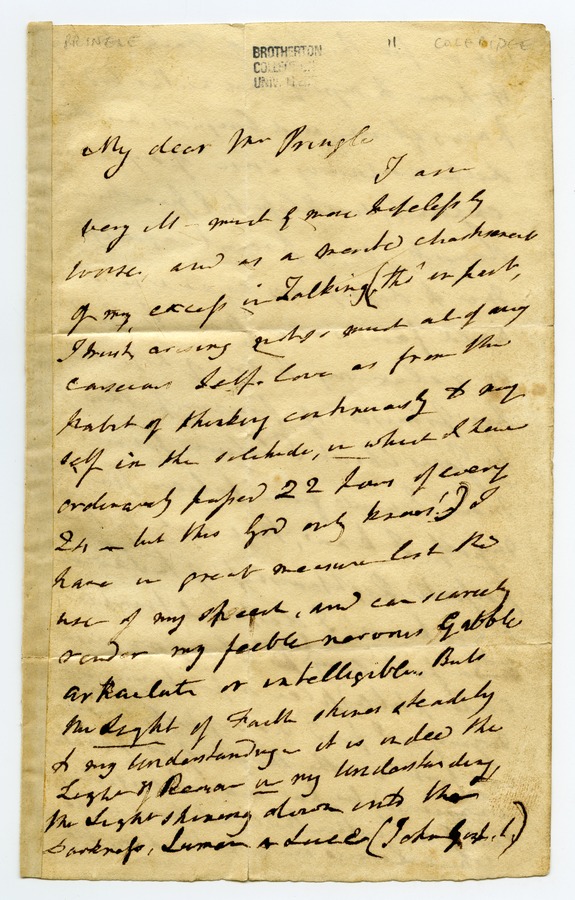 PRINGLE 11. COLERIDGE
BROTHERTON
COLLECTION
UNIV.
My dear Mr Pringle
I am
very ill — and of more hopelessly
worse, and as a merited chastisement
of my excess in Talking (tho' in part,
I trust, arising not so much out of any
conscious Self-love as from the
habit of thinking continuously & my
self in the solitude, in which I have
ordinarily passed 22 hours of every
24 — but this God only knows!) I
have in great measure lost the
use of my speech, and can scarcely
render my feeble nervous Gabble
articulate or intelligible. But
the Light of Faith shines steadily
to my Understanding — it is indeed the
Light of Reason in my Understanding,
the Light shining down into the
Darkness, Lumen a Luce (John Gosp. 1.)